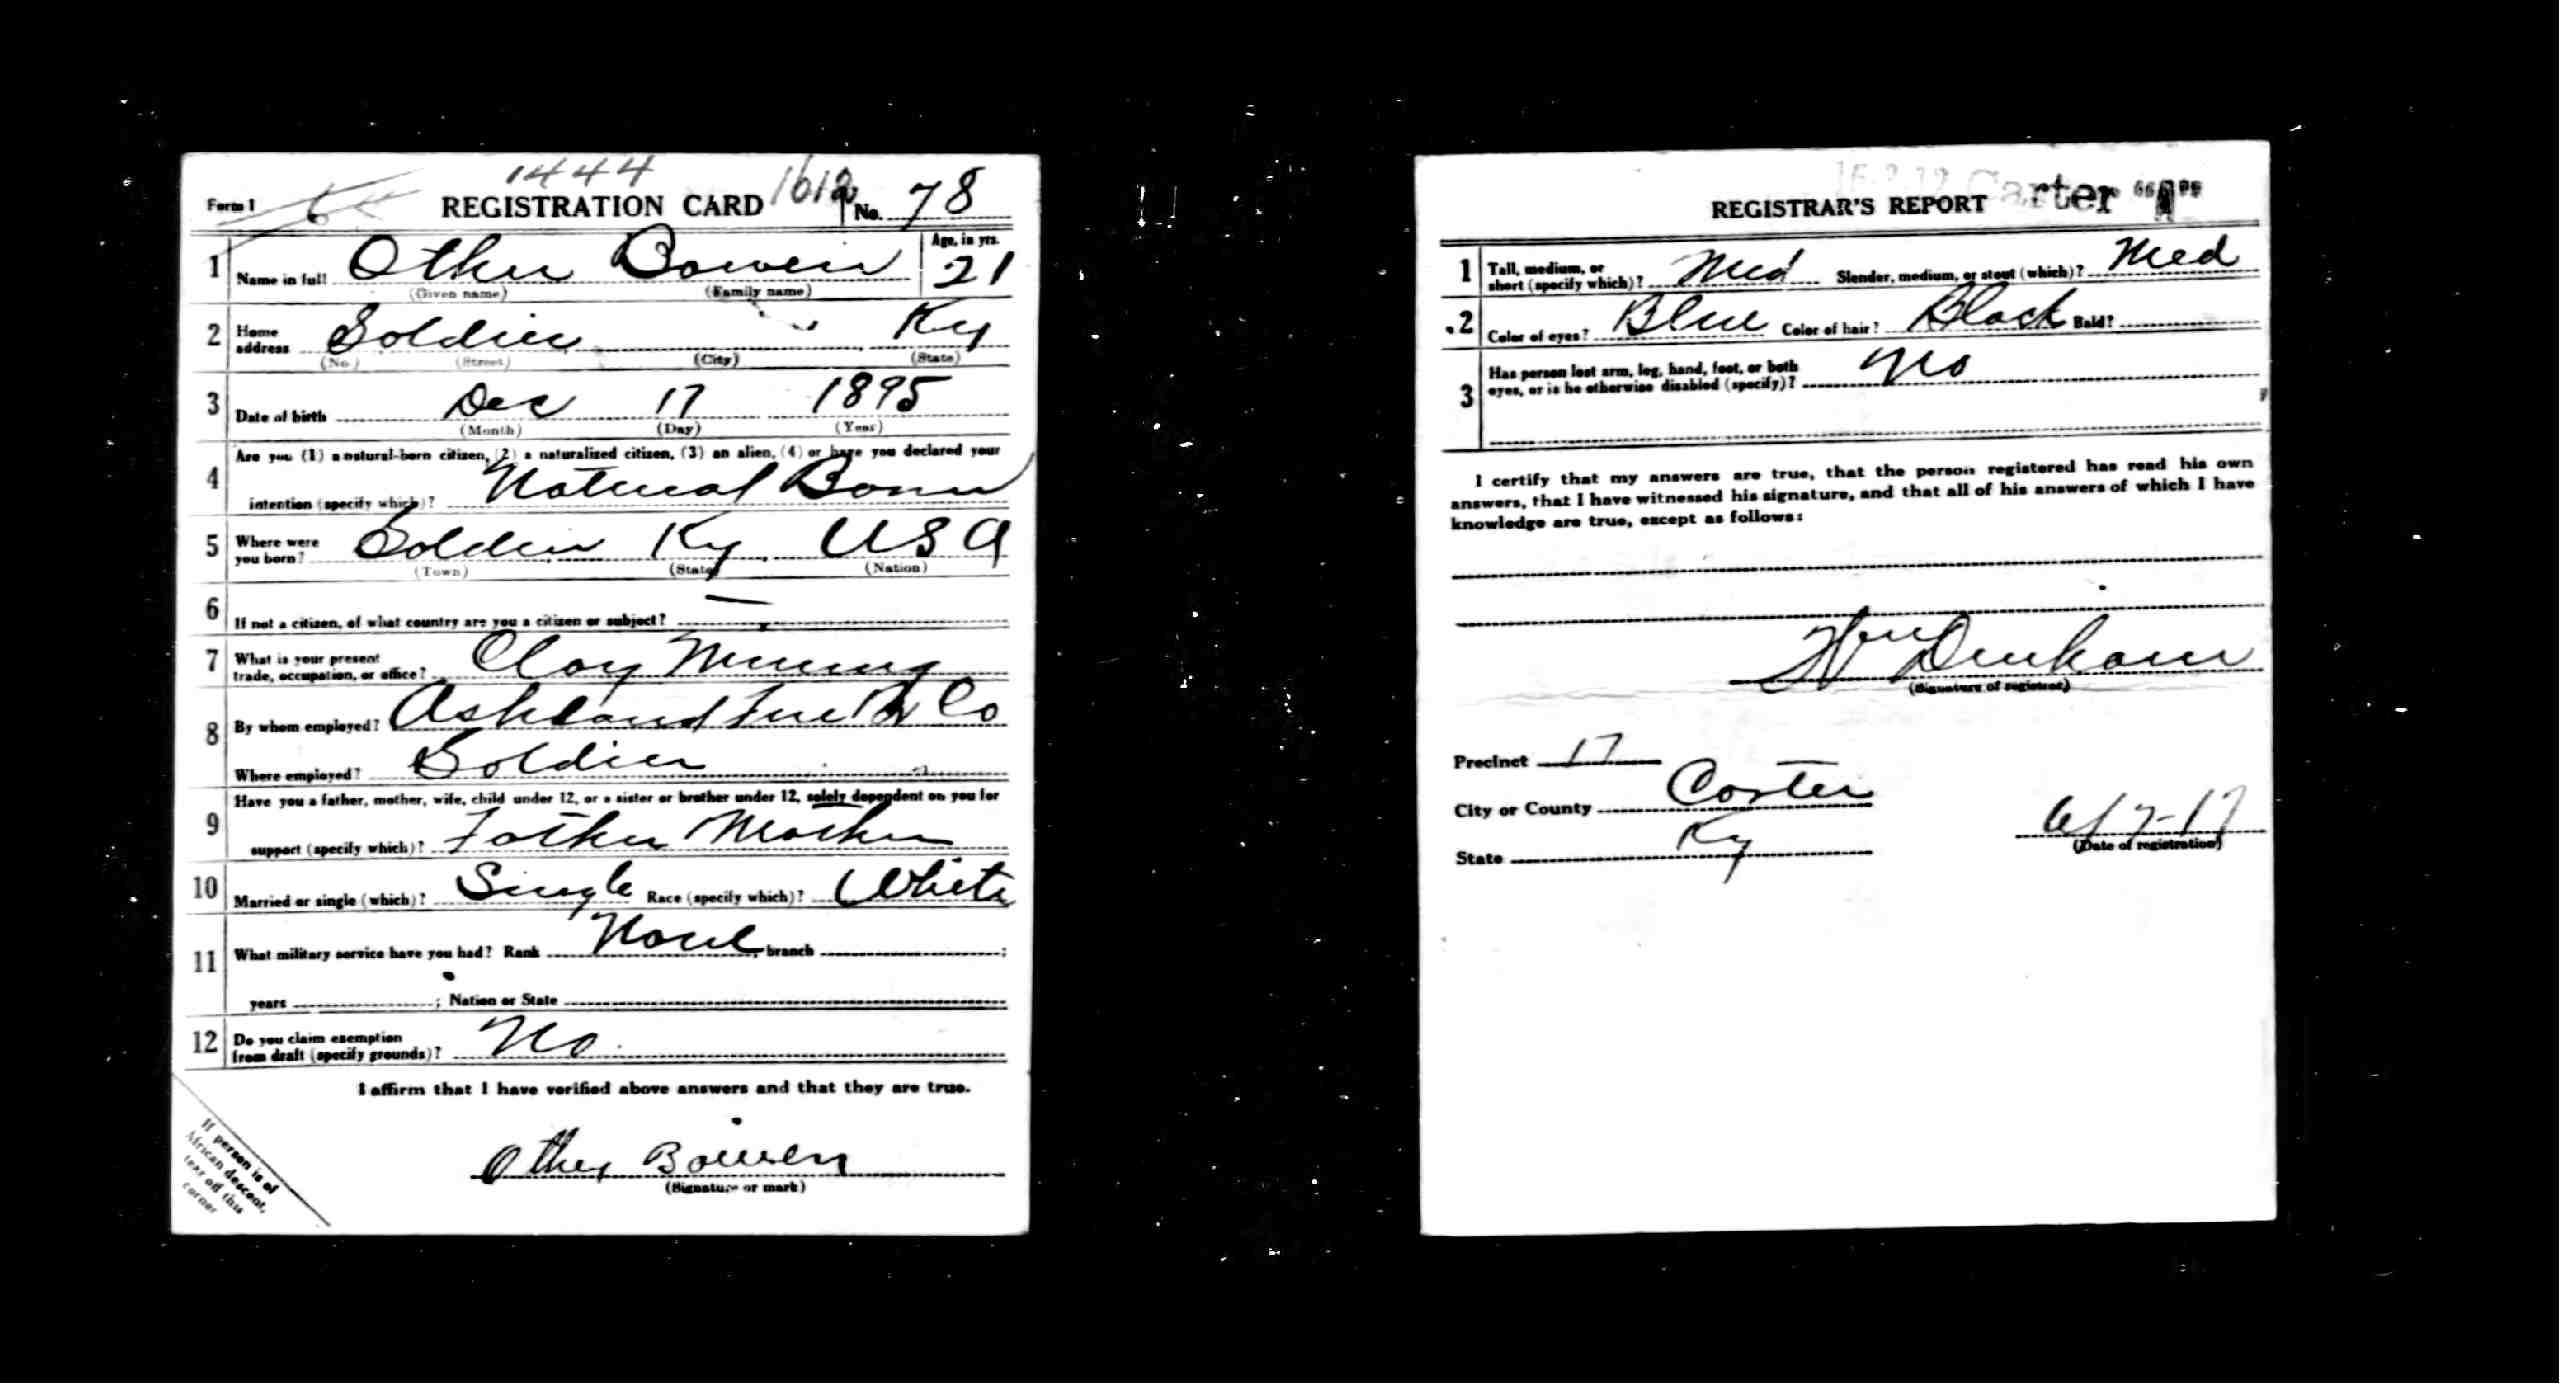 1444
Form 1 REGISTRATION CARD 1612 No. 78
1 Name in full Other Bowen Age, in yrs. 21
(Given name) (Family name)
2 Home address Soldier Ky
(No.) (Street) (City) (State)
3 Date of birth Dec 17 1895
(Month) (Day) (Year)
4 Are you (1) a natural-born citizen, (2) a naturalized citizen, (3) an alien, (4) or have you declared your
intention (specify which)? Natural Born
5 Where were you born? Soldier Ky. USA
(Town) (State) (Nation)
6 If not a citizen, of what country are you a citizen or subject? —
7 What is your present trade, occupation, or office? Clay Mining
8 By whom employed? Ashland Fire Br Co
Where employed? Soldier
9 Have you a father, mother, wife, child under 12, or a sister or brother under 12, solely dependent on you for
support (specify which)? Father Mother
10 Married or single (which)? Single Race (specify which)? White
11 What military service have you had? Rank None branch ;
years ; Nation or State
12 Do you claim exemption from draft (specify grounds)? No
I affirm that I have verified above answers and that they are true.
Othey Bowen
(Signature or mark)
If person is of
African descent,
tear off this
corner
REGISTRAR'S REPORT Carter
1 Tall, medium, or short (specify which)? Med Slender, medium, or stout (which)? Med
2 Color of eyes? Blue Color of hair? Black Bald?
3 Has person lost arm, leg, hand, foot, or both
eyes, or is he otherwise disabled (specify)? No
I certify that my answers are true, that the person registered has read his own
answers, that I have witnessed his signature, and that all of his answers of which I have
knowledge are true, except as follows:
Wm Dunham
(Signature of registrar)
Precinct 17
City or County Carter
State Ky
6/7-17
(Date of registration)